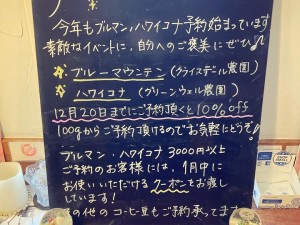 今年もブルマン,ハワイコナ予約始まっています
素敵なイベントに,自分へのご褒美にぜひ♪
ブルーマウンテン(クライスデール農園)
ハワイコナ(グリーンウェル農園)
12月20日までにご予約頂くと10%off
100gからご予約頂けるのでお気軽にどうぞ!
ブルマン,ハワイコナ3000円以上
ご予約のお客様には,1月中に
お使いいただけるクーポンをお渡し
しています!
の他のコーヒー豆もご予約承ってます